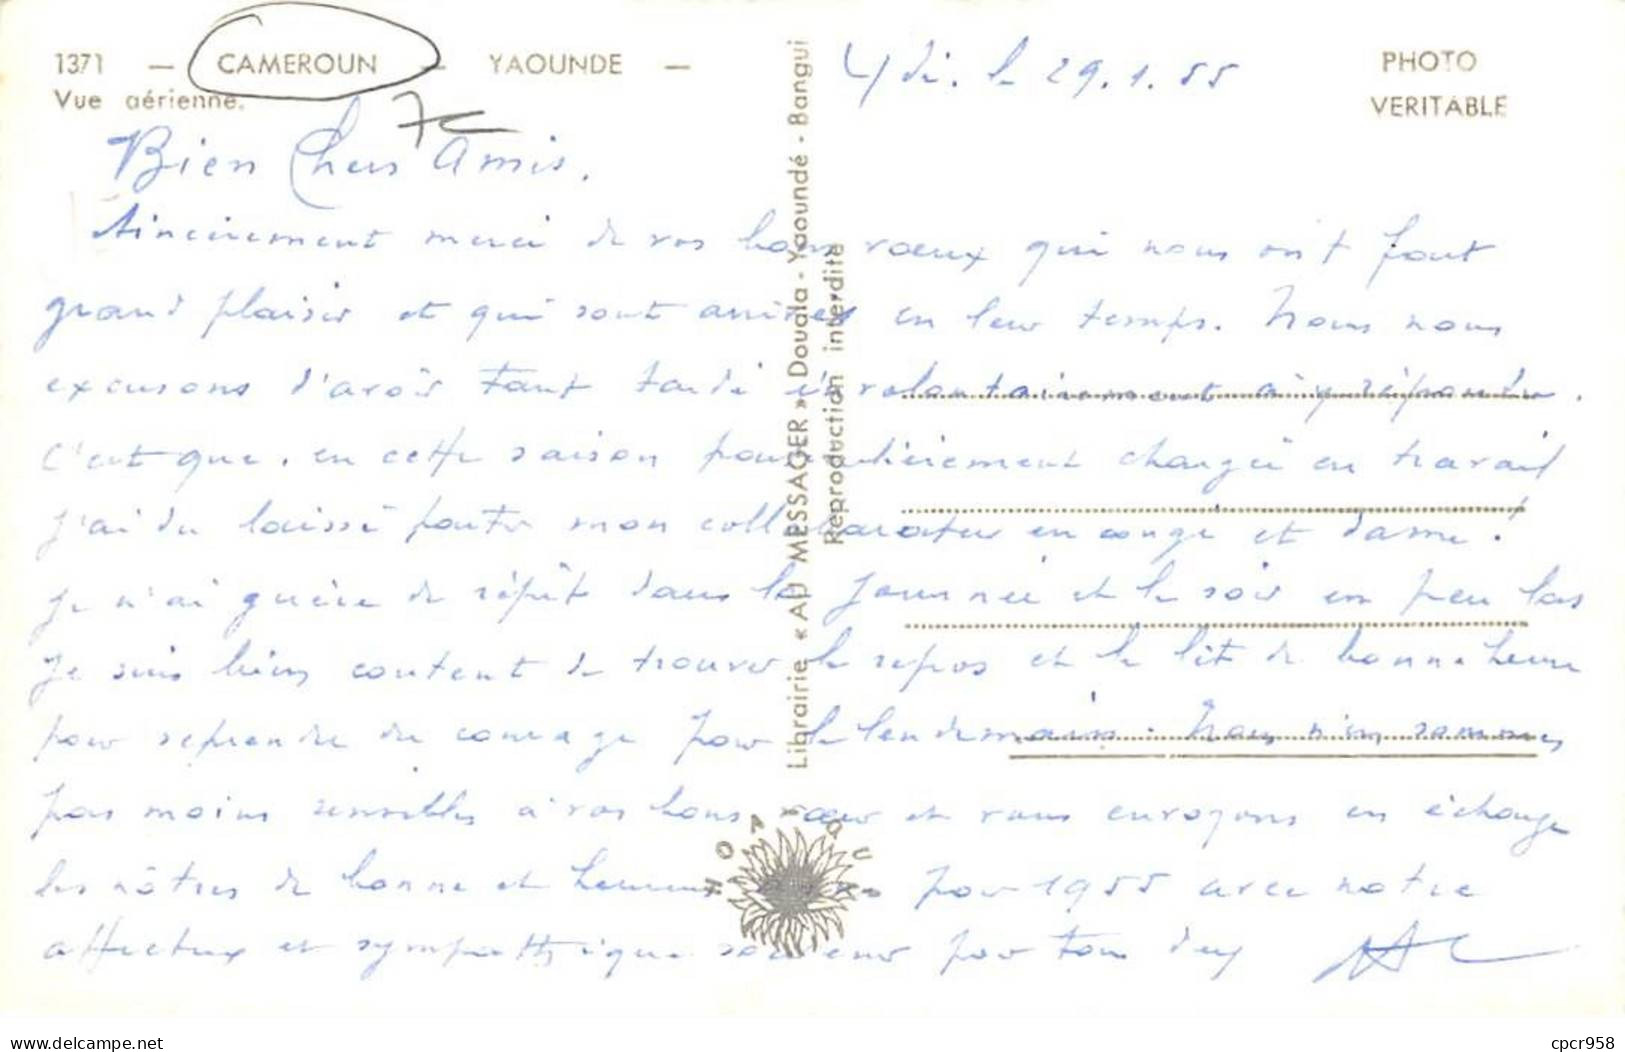 1371 — CAMEROUN — YAOUNDE —
Vue aérienne.
PHOTO
VERITABLE
Ydé. le 29.1.55
7€
Bien Chers Amis.
Sincèrement merci de vos bons voeux qui nous ont fait
grand plaisir et qui sont arrivés en leur temps. Nous nous
excusons d'avoir tant tardé involontairement à y répondre.
C'est que, en cette saison particulièrement chargée en travail
j'ai dû laisser partir mon collaborateur en congé et dame!
je n'ai guère de répit dans la journée et le soir un peu las
je suis bien content de trouver le repos et le lit de bonne heure
pour reprendre du courage pour le lendemain. Nous n'en sommes
pas moins sensibles à vos bons voeux et vous envoyons en échange
les nôtres de bonne et heureuse pour 1955 avec notre
affectueux et sympathique souvenir pour tous deux
Librairie « AU MESSAGER » Douala - Yaoundé - Bangui
Reproduction interdite
HOA-QUI
www.delcampe.net
cpcr958